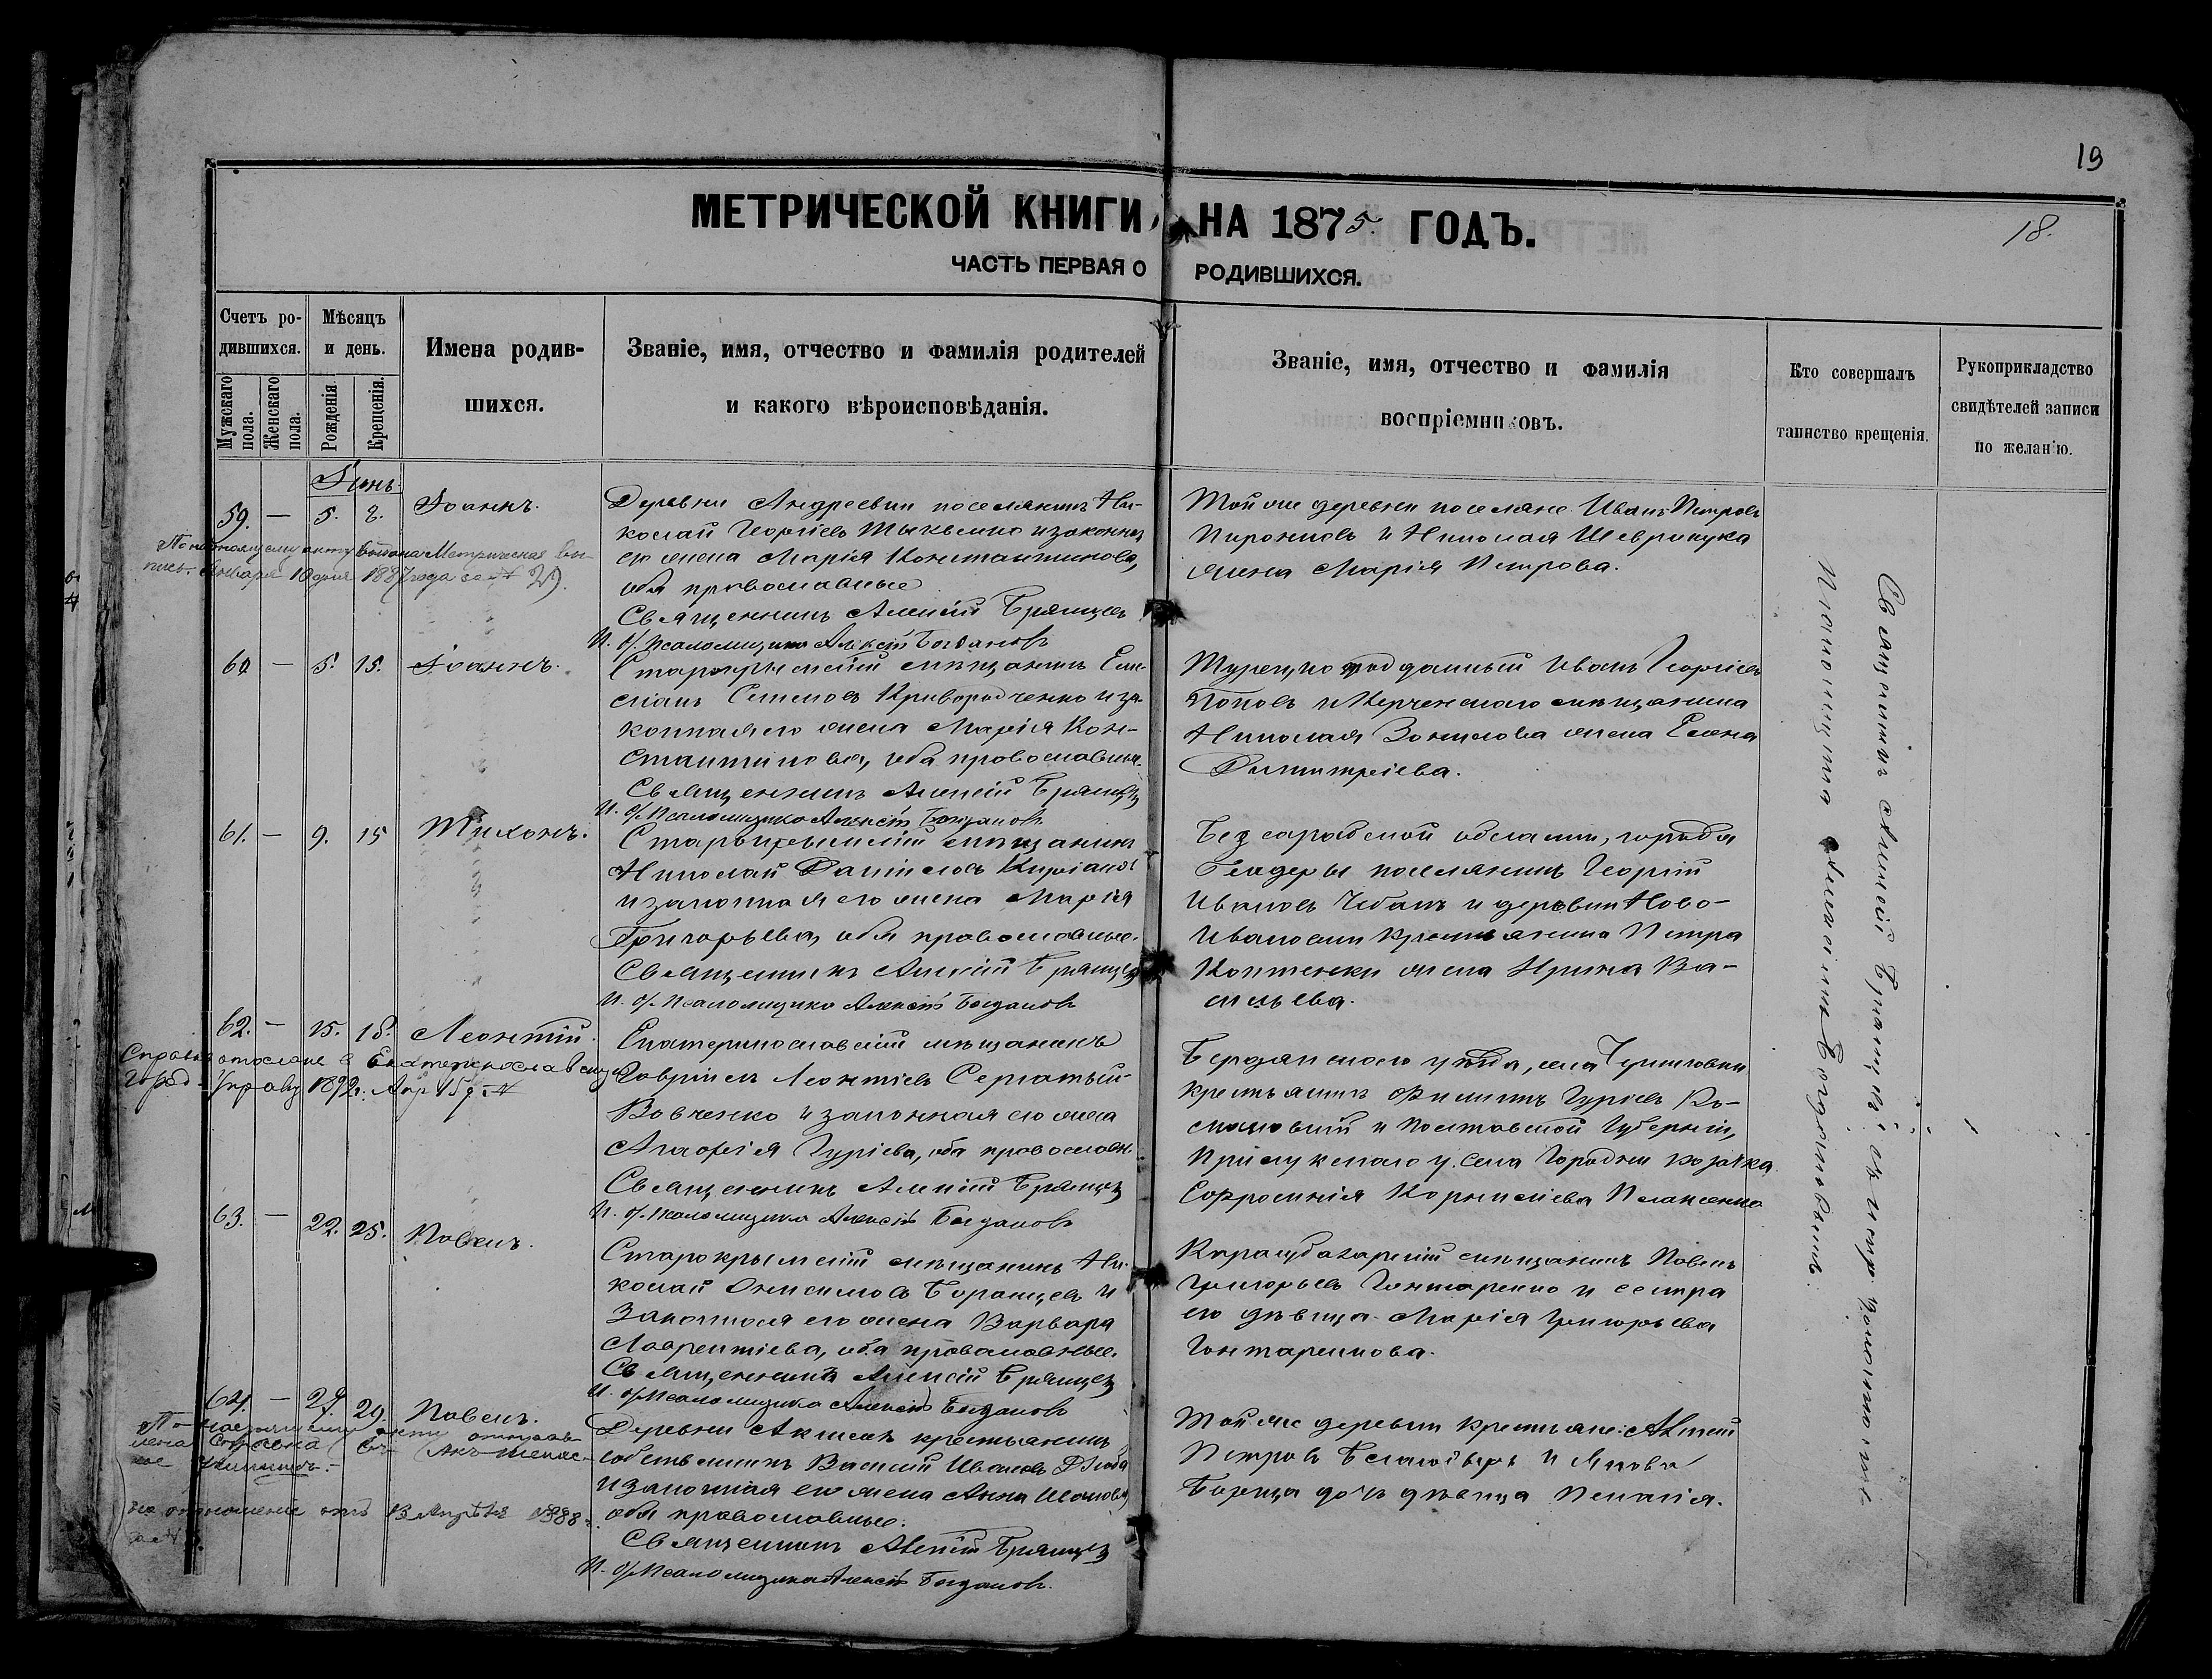 19
18.
МЕТРИЧЕСКОЙ КНИГИ, НА 1875. ГОДЪ.
ЧАСТЬ ПЕРВАЯ О РОДИВШИХСЯ.
Счетъ родившихся.
Мужскаго пола.
Женскаго пола.
Мѣсяцъ и день.
Рожденія
Крещенія.
Имена родившихся.
Званіе, имя, отчество и фамилія родителей
и какого вѣроисповѣданія.
Званіе, имя, отчество и фамилія
воспріемниковъ.
Кто совершалъ
таинство крещенія.
Рукоприкладство
свидѣтелей записи
по желанію.
59. — 5. 8. Іоаннъ.
По настоящему акту выдана Метрическая вы-
пись. Января 10 дня 1887 года за №
Деревни Андреевки поселянинъ Ни-
колай Георгіевъ и законная
его жена Марія Константинова,
оба православные
Священникъ Алексій Брянцевъ
И. д. Псаломщика Алексѣй Богдановъ
Той же деревни поселяне: Иванъ Петровъ
Пирожковъ и Николая Шевринука
жена Марія Петрова.
60 — 5. 15. Іоаннъ.
Старокрымскій мѣщанинъ Еме-
ліанъ Семеновъ Криворотченко и за-
конная его жена Марія Кон-
стантинова, оба православные.
Священникъ Алексій Брянцевъ
И. д. Псаломщика Алексѣй Богдановъ
Турецко подданный Иванъ Георгіевъ
Поповъ и Керченскаго мѣщанина
Николая жена Елена
Димитріева.
61. — 9. 15 Тихонъ.
Старокрымскій мѣщанинъ
Николай Даніиловъ
и законная его жена Марія
Григорьева, оба православные.
Священникъ Алексій Брянцевъ
И. д. Псаломщика Алексѣй Богдановъ
Бессарабской области, города
Бендеры поселянинъ Георгій
Ивановъ Чебанъ и деревни Ново-
Ивановки крестьянина Петра
Коптенки жена Ирина Ва-
сильева.
62. — 15. 18. Леонтій.
Справка отослана в Екатеринославскую
Город. Управу 1892 г. Апр 15 д №
Екатеринославскій мѣщанинъ
Гавріилъ Леонтіевъ
Вовченко и законная его жена
Агафія Гуріева, оба православн.
Священникъ Алексій Брянцевъ
И. д. Псаломщика Алексѣй Богдановъ
Бердянскаго уѣзда, села Черниговки
крестьянинъ Филиппъ Гуріевъ
и Полтавской Губерніи,
Прилукскаго у. села Городни козачка
Евфросинія Корниліева
63. — 22. 25. Павелъ.
Старокрымскій мѣщанинъ Ни-
колай Онисимовъ и
Законная его жена Варвара
Лаврентіева, оба православные.
Священникъ Алексій Брянцевъ
И. д. Псаломщика Алексѣй Богдановъ
Карасубазарскій мѣщанинъ Павелъ
Григорьевъ Гонтаренко и сестра
его дѣвица Марія Григорьева
Гонтаренкова.
64. — 27. 29. Павелъ.
По настоящему акту отправ-
лена Справка
на отношеніе отъ 13 Апрѣля 1888
за №
Деревни крестьянинъ
собственникъ Василій Ивановъ
и законная его жена Анна
оба православные.
Священникъ Алексій Брянцевъ
И. д. Псаломщика Алексѣй Богдановъ.
Той же деревни крестьяне: Алексій
Петровъ и Якова
дочь дѣвица Пелагія.
Священникъ Алексій Брянцевъ съ испр. должность
псаломщика Алексіемъ Богдановымъ.